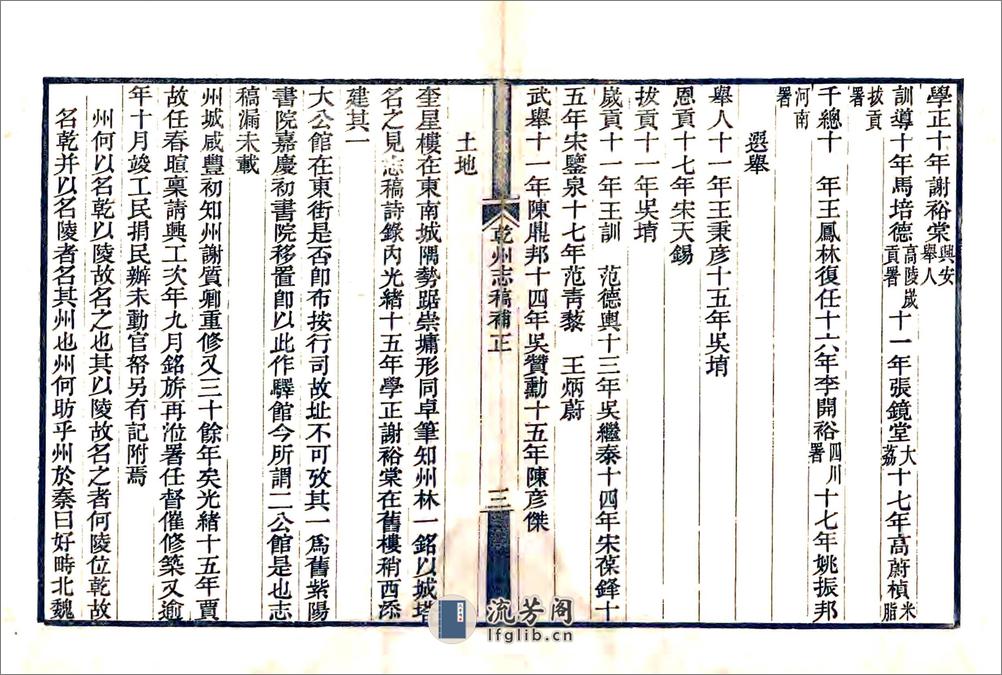 學正十年謝裕棠興安舉人
訓導十年馬培德高陵歲貢署十一年張鏡堂大荔十七年高蔚楨米脂
拔貢署
千總十　年王鳳林復任十六年李開裕四川署十七年姚振邦
河南署
選舉
舉人十一年王秉彥十五年吳堉
恩貢十七年宋天錫
拔貢十一年吳堉
歲貢十一年王訓　范德輿十三年吳繼泰十四年宋葆鋒十
五年宋鑒泉十七年范靑藜　王炳蔚
武舉十一年陳鼎邦十四年吳贊勳十五年陳彥傑
乾州志稿補正
三
土地
奎星樓在東南城隅勢踞崇墉形同卓筆知州林一銘以城塔
名之見志稿詩錄內光緒十五年學正謝裕棠在舊樓稍西添
建其一
大公館在東街是否卽布按行司故址不可攷其一爲舊紫陽
書院嘉慶初書院移置卽以此作驛館今所謂二公館是也志
稿漏未載
州城咸豐初知州謝質卿重修又三十餘年矣光緒十五年賈
故任春暄稟請興工次年九月銘旂再涖署任督催修築又逾
年十月竣工民捐民辦未動官帑另有記附焉
州何以名乾以陵故名之也其以陵故名之者何陵位乾故
名乾并以名陵者名其州也州何昉乎州於秦曰好畤北魏
流芳阁
lfglib.cn